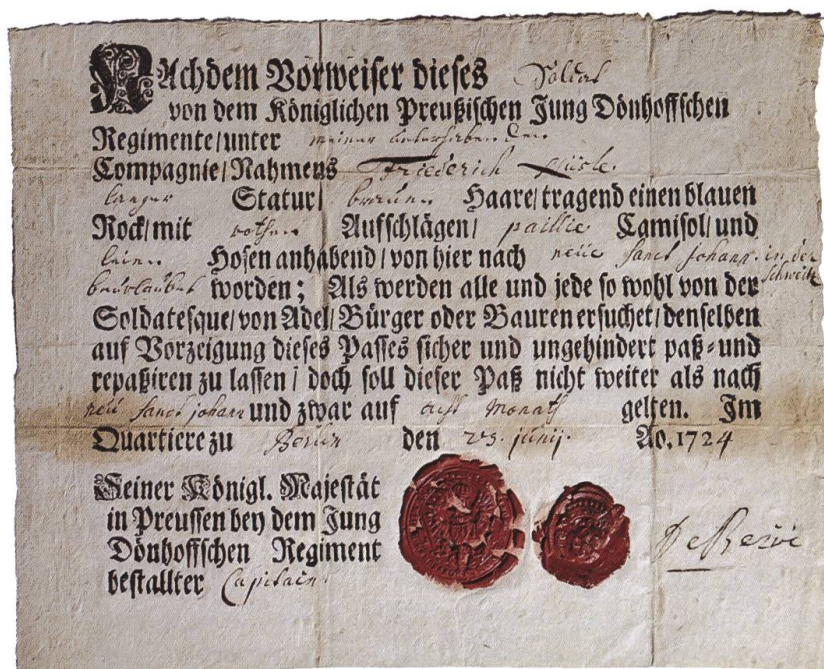 Nachdem Vorweiser dieses Soldat
von dem Königlichen Preußischen Jung Dönhoffschen
Regimente/unter meiner unterhabenden
Compagnie/Nahmens Friederich
langer Statur/ braunen Haare/tragend einen blauen
Rock/mit rothen Aufschlägen/ paillie Camisol/und
leinen Hosen anhabend/von hier nach neüe Sanct Johann in der
Schweitz
beurlaubet worden; Als werden alle und jede so wohl von der
Soldatesque/von Adel/Bürger oder Bauren ersuchet/denselben
auf Vorzeigung dieses Passes sicher und ungehindert paß- und
repaßiren zu lassen/ doch soll dieser Paß nicht weiter als nach
neü Sanct Johann und zwar auf acht Monath gelten. Im
Quartiere zu Berlin den 23. Junij. Ao. 1724
Seiner Königl. Majestät
in Preussen bey dem Jung
Dönhoffschen Regiment
bestallter Capitain